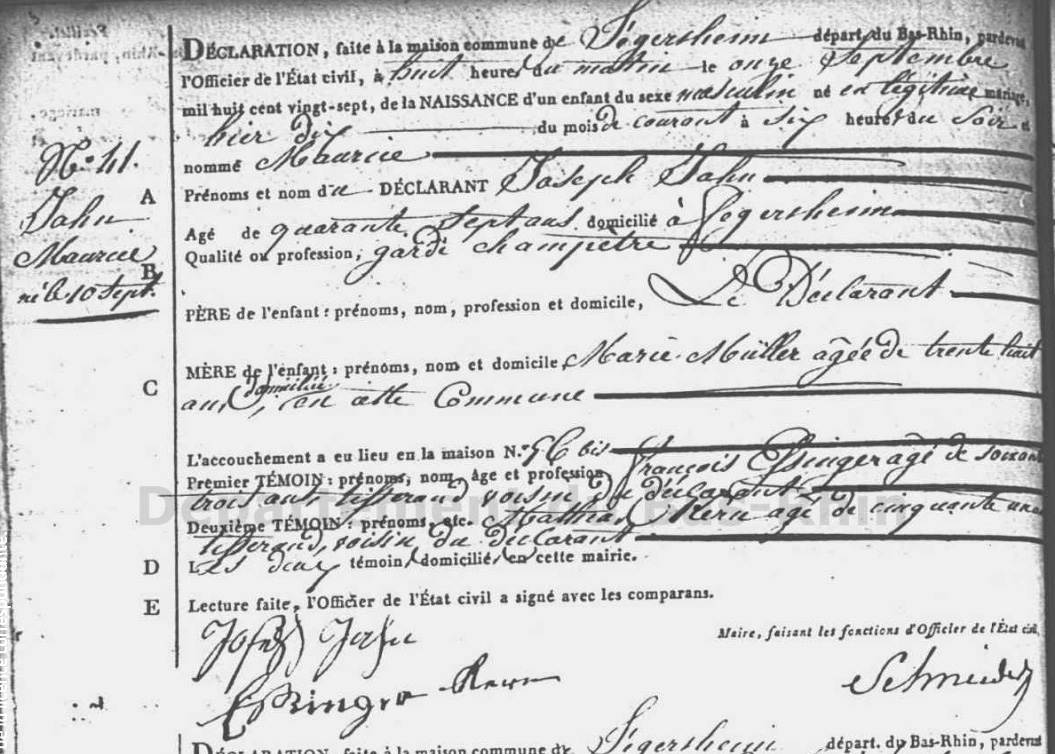 DÉCLARATION, faite à la maison commune de Fegersheim départ. du Bas-Rhin, pardevant
l'Officier de l'État civil, à huit heures du matin le onze Septembre
mil huit cent vingt-sept, de la NAISSANCE d'un enfant du sexe masculin né en légitime mariage,
hier dix du mois de courant à six heures du soir et
nommé Maurice
N.o 41.
Jahn
Maurice
né le 10 Sept.
A
Prénoms et nom du DÉCLARANT Joseph Jahn
Agé de quarante sept ans domicilié à Fegersheim
Qualité ou profession, garde champetre
B
PÈRE de l'enfant : prénoms, nom, profession et domicile, Le Déclarant
C
MÈRE de l'enfant : prénoms, nom et domicile, Marie Müller âgée de trente huit
ans, domiciliée en cette Commune
L'accouchement a eu lieu en la maison N.o 56 bis
Premier TÉMOIN : prénoms, nom, âge et profession François Essinger agé de soixante
trois ans, tisserand voisin du déclarant
Deuxième TÉMOIN : prénoms, etc. Mathias Kern agé de cinquante un ans
tisserand, voisin du déclarant
D
Les deux témoins domiciliés en cette mairie.
E
Lecture faite, l'Officier de l'État civil a signé avec les comparans.
Maire, faisant les fonctions d'Officier de l'État civil,
Josef Jahn
Essinger Kern
Schneider
DÉCLARATION, faite à la maison commune de Fegersheim départ. du Bas-Rhin, pardevant
Département du Bas-Rhin